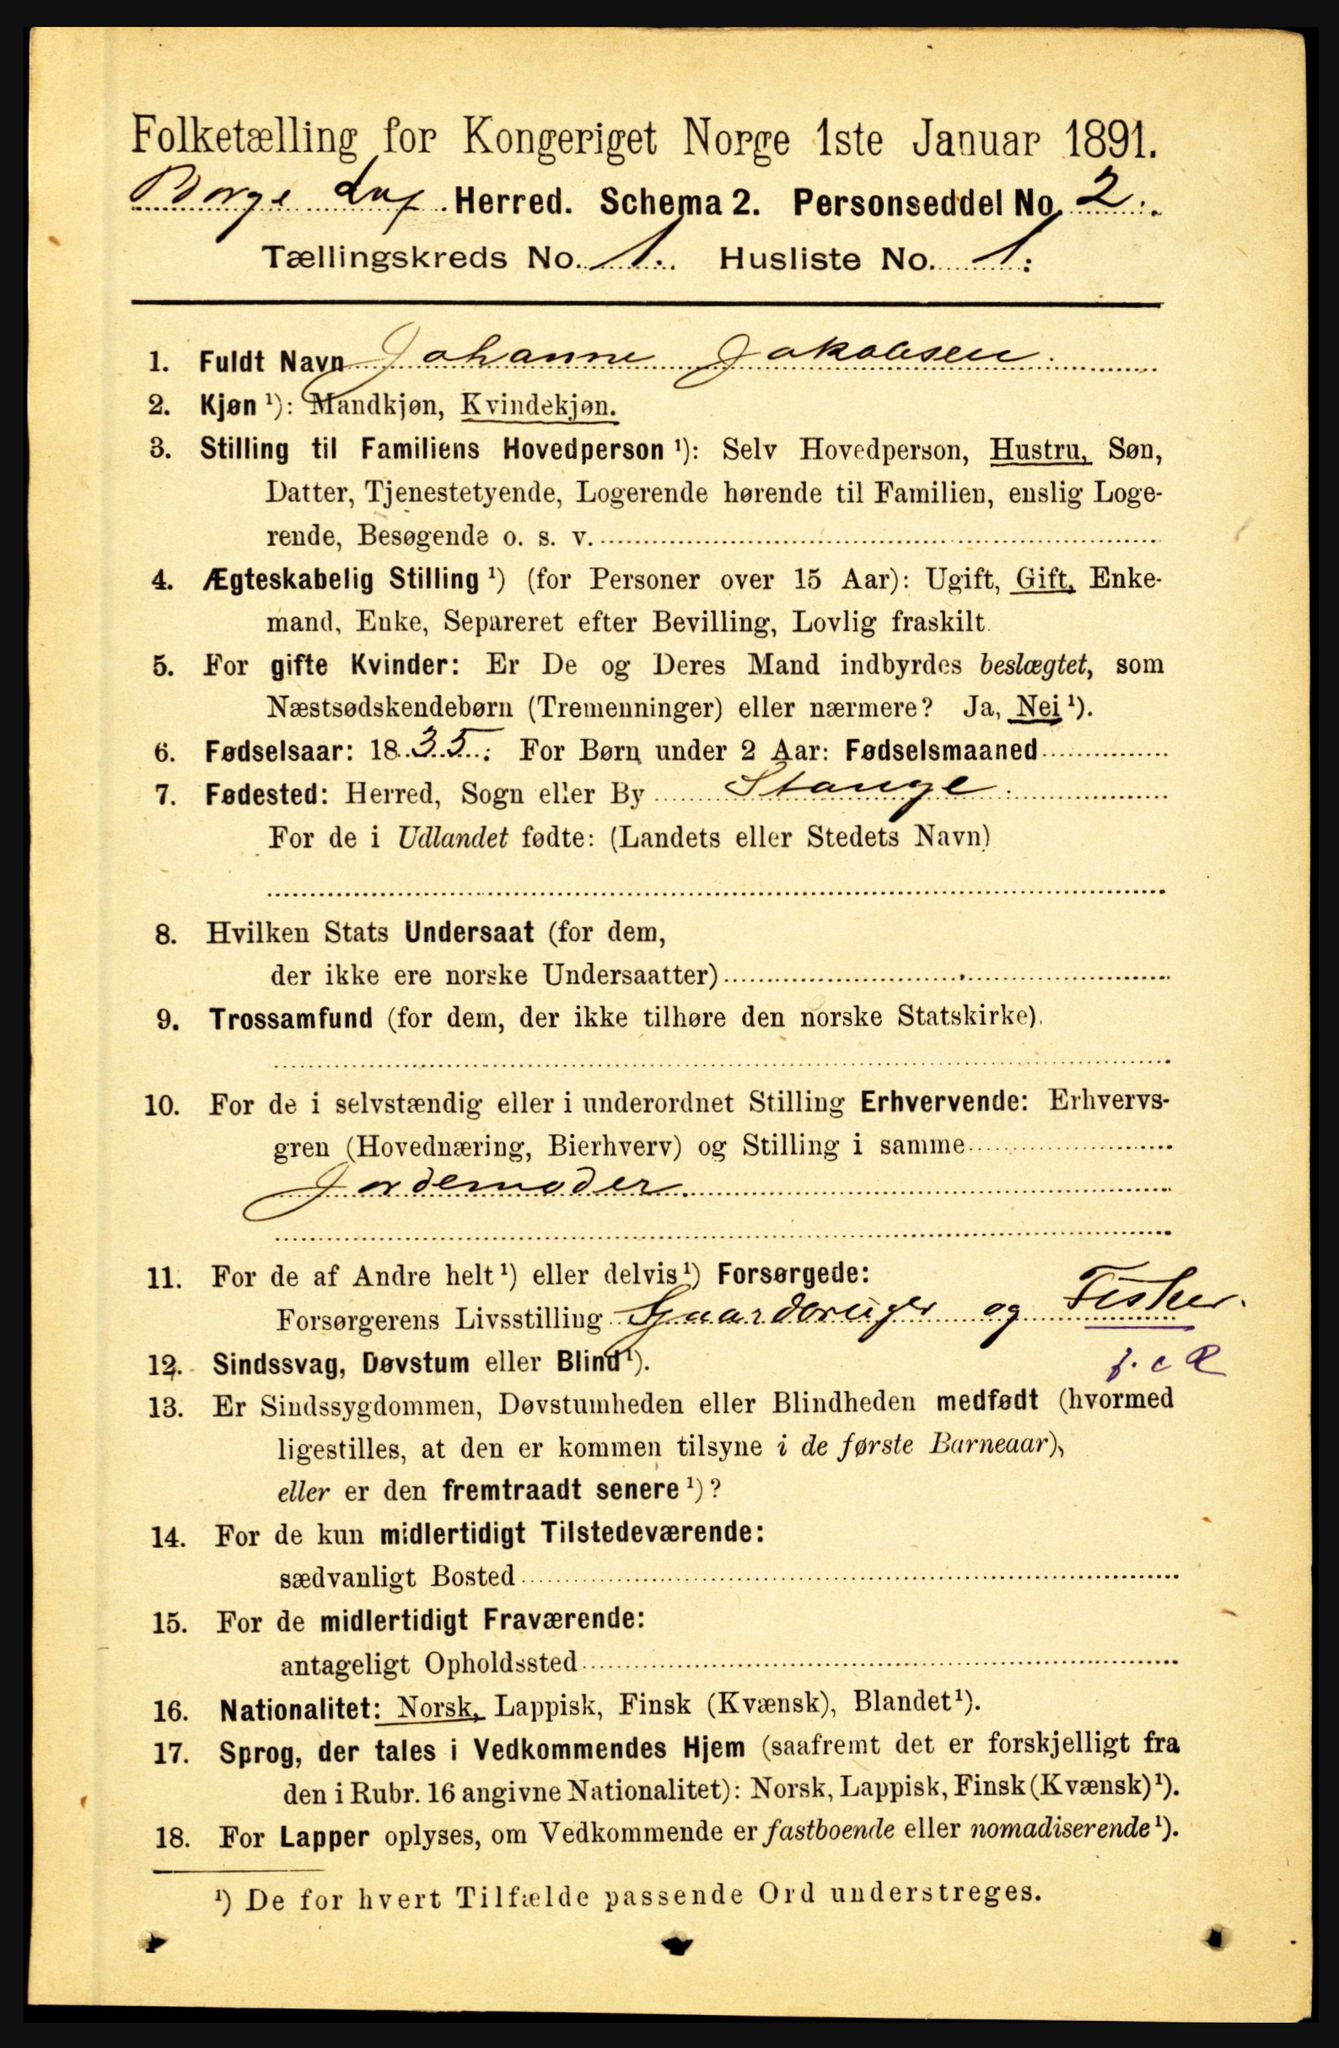 Folketælling for Kongeriget Norge 1ste Januar 1891.
Borge Lof. Herred. Schema 2. Personseddel No. 2.
Tællingskreds No. 1. Husliste No. 1.
1. Fuldt Navn Johanne Jakobsen.
2. Kjøn ¹): Mandkjøn, Kvindekjøn.
3. Stilling til Familiens Hovedperson ¹): Selv Hovedperson, Hustru, Søn,
Datter, Tjenestetyende, Logerende hørende til Familien, enslig Loge-
rende, Besøgende o. s. v.
4. Ægteskabelig Stilling ¹) (for Personer over 15 Aar): Ugift, Gift, Enke-
mand, Enke, Separeret efter Bevilling, Lovlig fraskilt.
5. For gifte Kvinder: Er De og Deres Mand indbyrdes beslægtet, som
Næstsødskendebørn (Tremenninger) eller nærmere? Ja, Nei ¹).
6. Fødselsaar: 1835. For Børn under 2 Aar: Fødselsmaaned
7. Fødested: Herred, Sogn eller By Stange.
For de i Udlandet fødte: (Landets eller Stedets Navn)
8. Hvilken Stats Undersaat (for dem,
der ikke ere norske Undersaatter)
9. Trossamfund (for dem, der ikke tilhøre den norske Statskirke).
10. For de i selvstændig eller i underordnet Stilling Erhvervende: Erhvervs-
gren (Hovednæring, Bierhverv) og Stilling i samme
Jordemoder.
11. For de af Andre helt ¹) eller delvis ¹) Forsørgede:
Forsørgerens Livsstilling Gaardbruger og Fisker.
12. Sindssvag, Døvstum eller Blind ¹).
13. Er Sindssygdommen, Døvstumheden eller Blindheden medfødt (hvormed
ligestilles, at den er kommen tilsyne i de første Barneaar),
eller er den fremtraadt senere ¹)?
14. For de kun midlertidigt Tilstedeværende:
sædvanligt Bosted
15. For de midlertidigt Fraværende:
antageligt Opholdssted
16. Nationalitet: Norsk, Lappisk, Finsk (Kvænsk), Blandet ¹).
17. Sprog, der tales i Vedkommendes Hjem (saafremt det er forskjelligt fra
den i Rubr. 16 angivne Nationalitet): Norsk, Lappisk, Finsk (Kvænsk) ¹).
18. For Lapper oplyses, om Vedkommende er fastboende eller nomadiserende ¹).
¹) De for hvert Tilfælde passende Ord understreges.